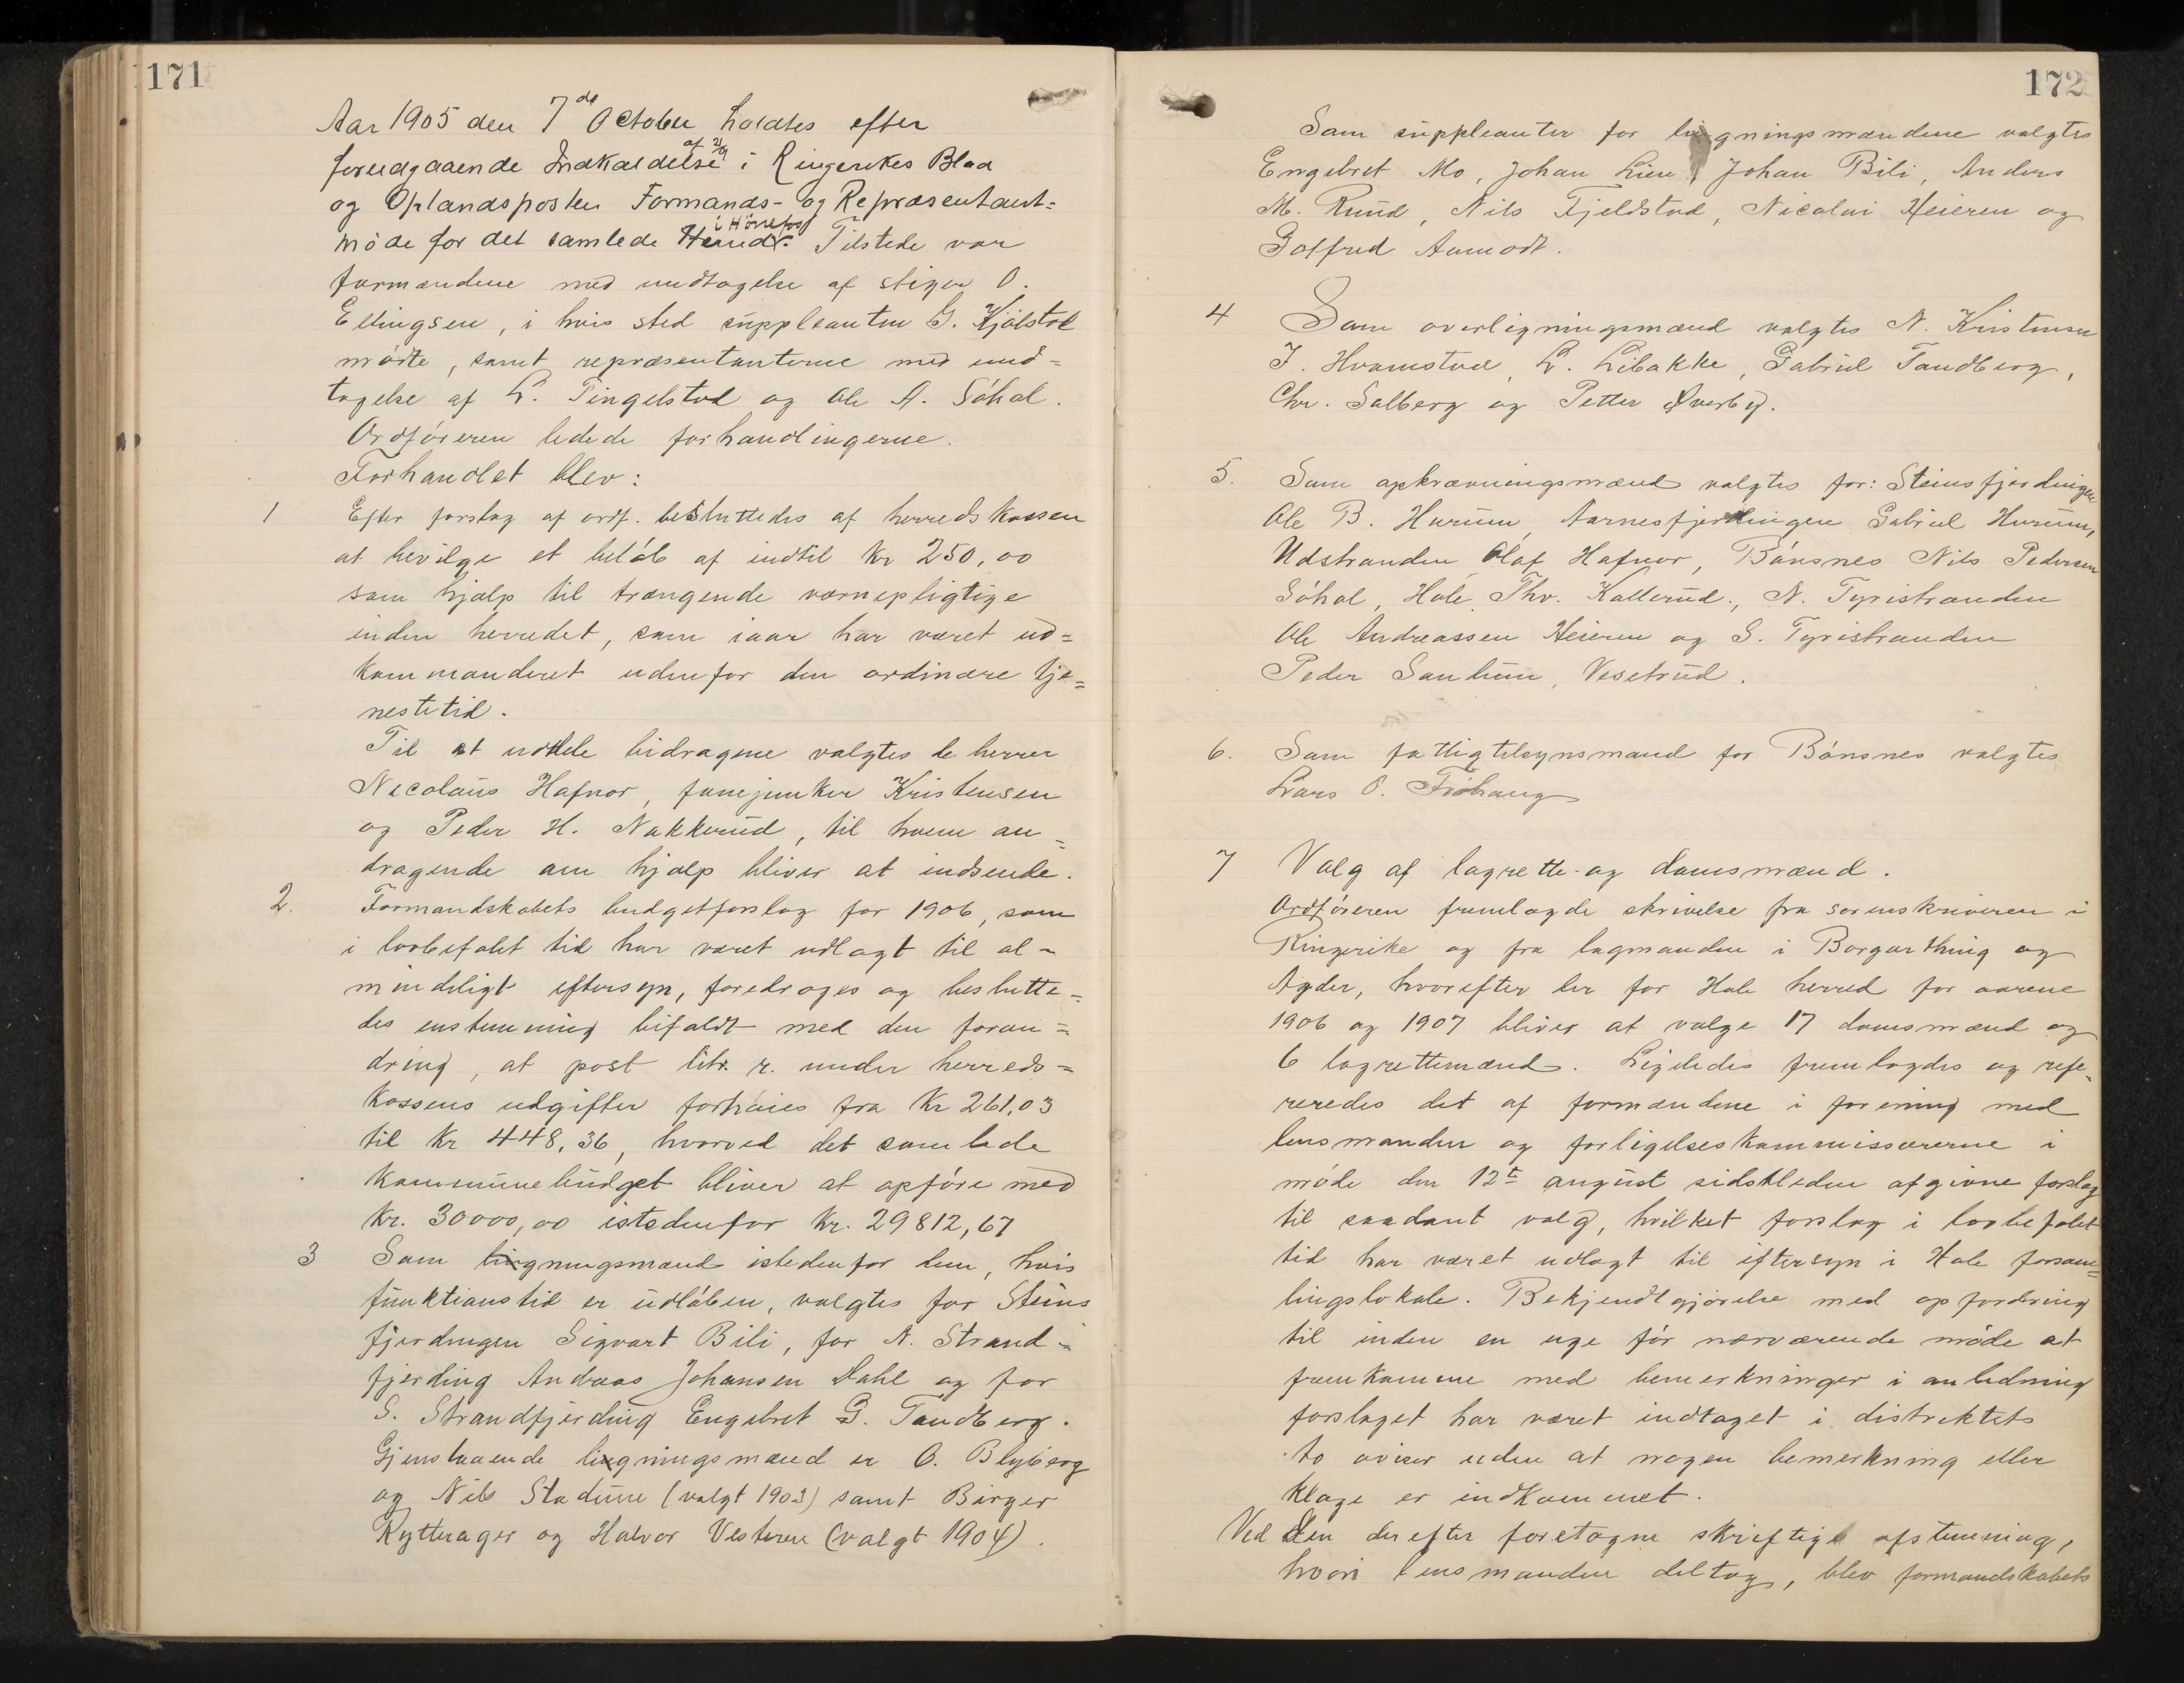 171
Aar 1905 den 7de October holdtes efter
forudgaaende Indkaldelse af 2/9 i Ringerikes Blad
og Oplandsposten Formands- og Repræsentant=
møde for det samlede Herred i Hönefos. Tilstede var
formændene med undtagelse af stiger O.
Ellingsen, i hvis sted suppleanten G. Kjölstad
mödte, samt repræsentanterne med und=
tagelse af L. Tingelstad og Ole A. Söhol.
Ordföreren ledede forhandlingerne.
Forhandlet blev:
1 Efter forslag af ordf. besluttedes af herredskassen
at bevilge et belöb af indtil Kr 250,00
som hjælp til trængende værnepligtige
inden herredet, som iaar har været ud=
kommanderet udenfor den ordinære tje=
nestetid.
Til at uddele bidragene valgtes de herrer
Nicolaus Hafnor, fanejunker Kristensen
og Peder H. Nakkerud, til hvem an=
dragende om hjælp bliver at indsende.
2. Formandskabets budgetforslag for 1906, som
i lovbefalet tid har været udlagt til al=
mindeligt eftersyn, foredroges og beslutte=
des enstemmig bifaldt med den foran=
dring, at post litr. r. under herreds=
kassens udgifter forhöies fra Kr 261,03
til Kr 448,36, hvorved det samlede
kommunebudget bliver at opföre med
Kr. 30000,00 istedenfor Kr. 29812,67
3 Som ligningsmænd istedenfor dem, hvis
funktionstid er udlöben, valgtes for Steins
fjerdingen Sigvart Bili, for N. Strand=
fjerding Andreas Johansen Dahl og for
S. Strandfjerding Engebret G. Tandberg.
Gjenstaaende ligningsmænd er O. Blyberg
og Nils Stadum (valgt 1903) samt Birger
Rytterager og Halvor Vesteren (valgt 1904).
172
Som suppleanter for ligningsmændene valgtes
Engebret Mo, Johan Lien, Johan Bili, Anders
M. Rud, Nils Fjeldstad, Nicolai Heieren og
Gotfred Aamodt.
4 Som overligningsmænd valgtes N. Kristensen
J. Hvamstad, L. Libakke, Gabriel Tandberg,
Chr. Solberg og Petter Øverby.
5. Som opkrævningsmænd valgtes for: Steinsfjerdingen
Ole B. Hurum, Aarnesfjerdingen Gabriel Hurum,
Udstranden Olaf Hafnor, Bönsnes Nils Pedersen
Söhol, Hole Thv. Kallerud, N. Tyristranden
Ole Andreassen Heieren og S. Tyristranden
Peder Sanhum, Vesetrud.
6. Som fattigtilsynsmand for Bönsnes valgtes
Lars O. Fröhaug
7 Valg af lagrette- og domsmænd.
Ordföreren fremlagde skrivelse fra sorenskriveren i
Ringerike og fra lagmanden i Borgarthing og
Agder, hvorefter der for Hole herred for aarene
1906 og 1907 bliver at vælge 17 domsmænd og
6 lagrettemænd. Ligeledes fremlagdes og refe=
reredes det af formændene i forening med
lensmanden og forligelseskommissærerne i
möde den 12te august sidstleden afgivne forslag
til saadant valg, hvilket forslag i lovbefalet
tid har været udlagt til eftersyn i Hole forsam=
lingslokale. Bekjendtgjörelse med opfordring
til inden en uge för nærværende möde at
fremkomme med bemerkninger i anledning
forslaget har været indtaget i distriktets
to aviser uden at nogen bemerkning eller
klage er indkommet.
Ved den derefter foretagne skriftlige afstemning,
hvori lensmanden deltog, blev formandskabets